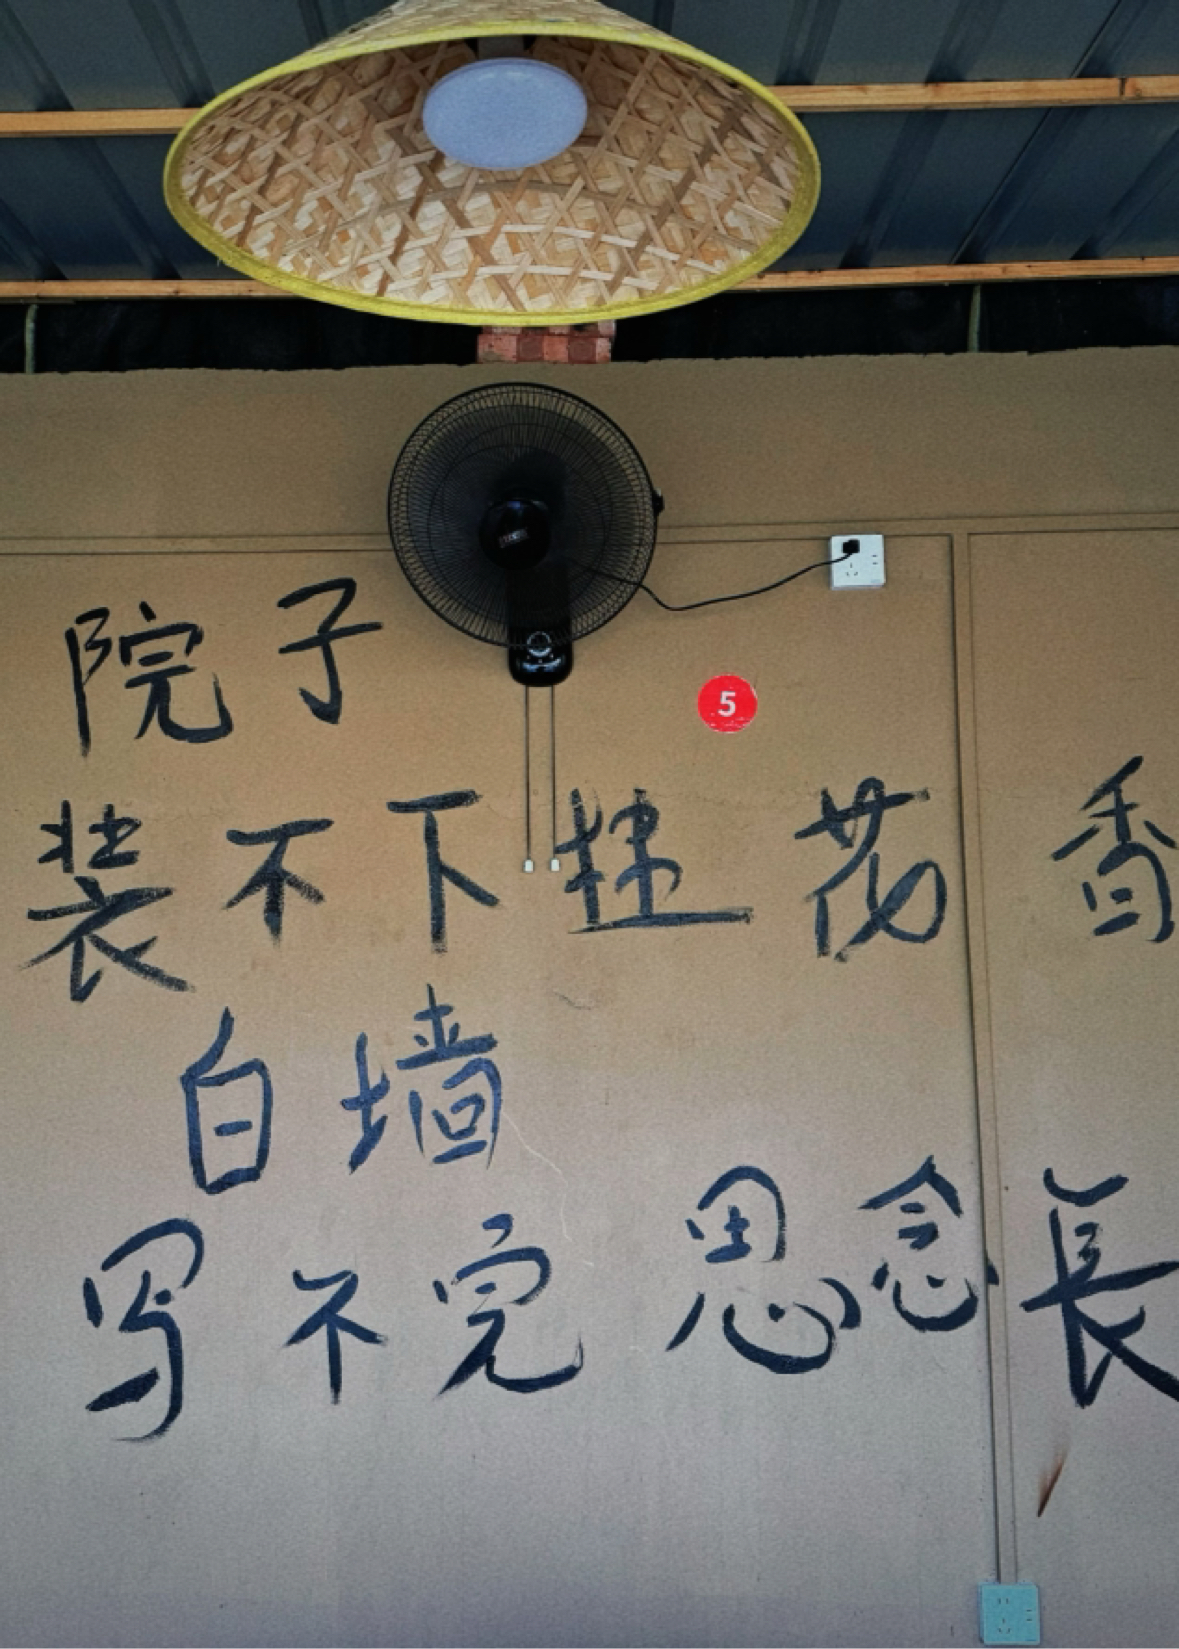 院子
5
装不下桂花香
白墙
写不完思念長